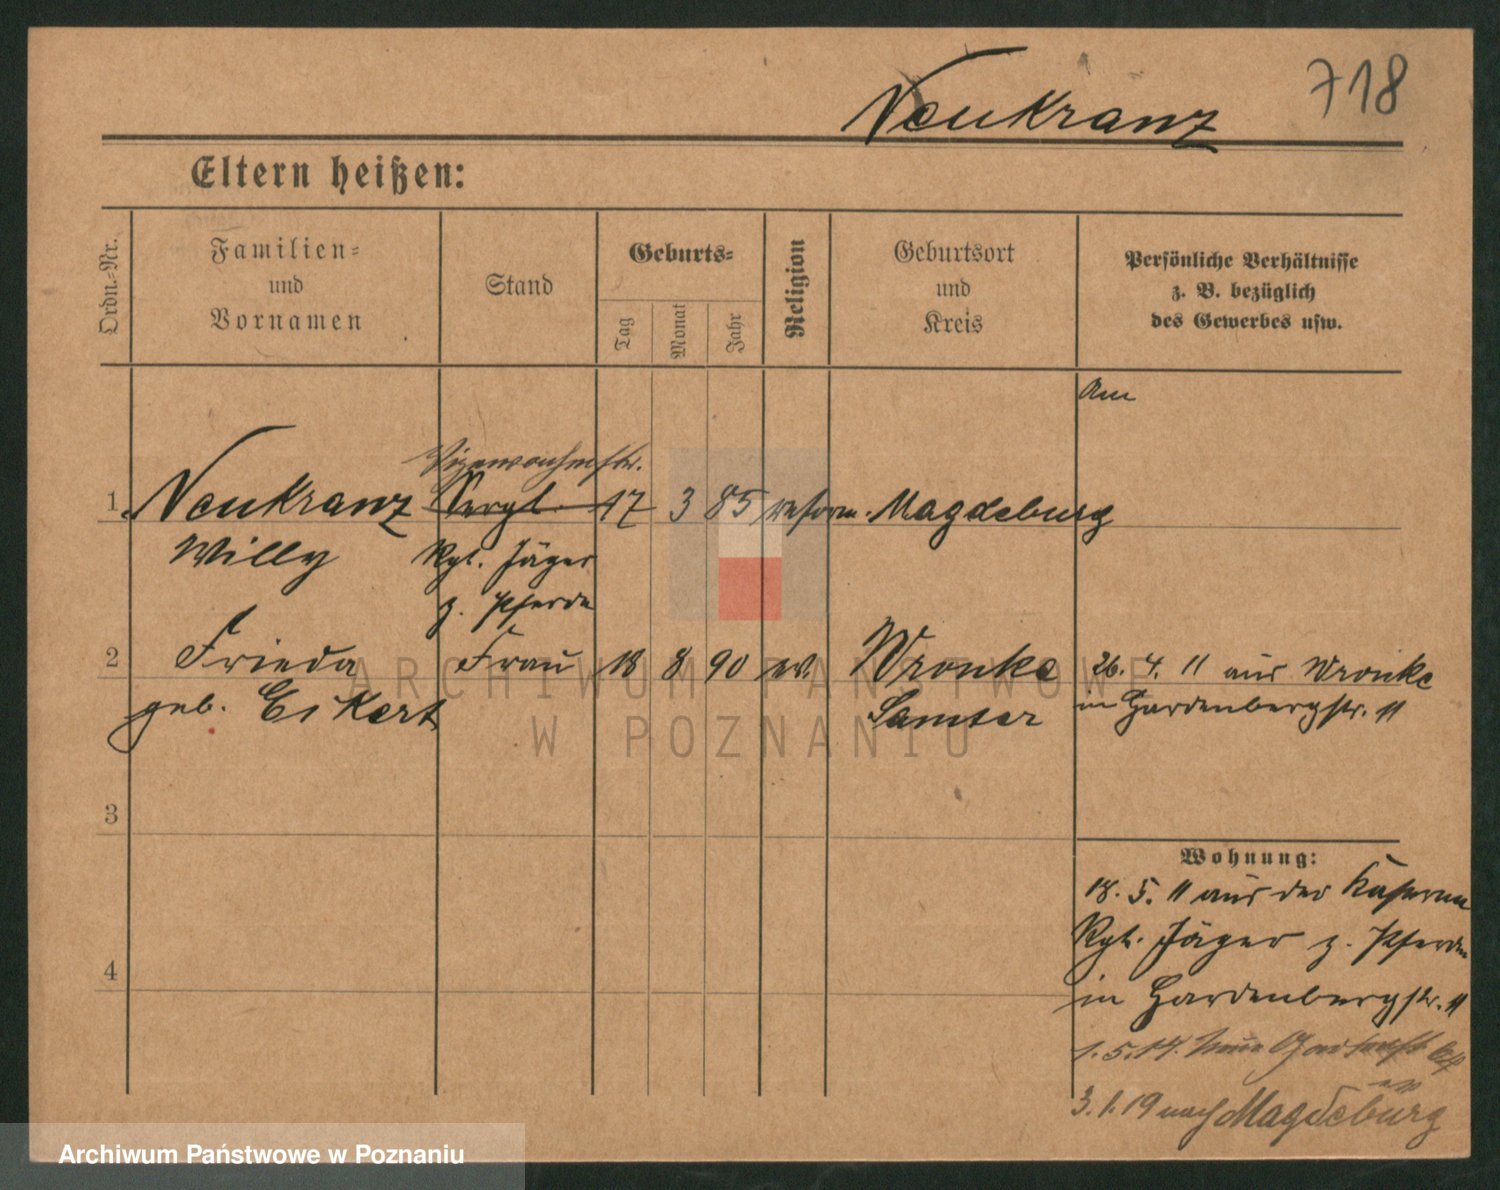 718
Neukranz
Eltern heißen:
Ordn.-Nr.
Familien-
und
Vornamen
Stand
Geburts-
Tag
Monat
Jahr
Religion
Geburtsort
und
Kreis
Persönliche Verhältnisse
z. B. bezüglich
des Gewerbes usw.
Am
Vizewachmstr.
1 Neukranz Sergt. 17 3 85 reform. Magdeburg
Willy Rgt. Jäger
z. Pferde
2 Frieda Frau 18 8 90 ev. Wronke 26. 4. 11 aus Wronke
geb. Eckert Samter in Hardenbergstr. 11
3
Wohnung:
18. 5. 11 aus der Kaserne
Rgt. Jäger z. Pferde
4
in Hardenbergstr. 11
1. 5. 14.
3. 1. 19 nach Magdeburg
ARCHIWUM PAŃSTWOWE
W POZNANIU
Archiwum Państwowe w Poznaniu